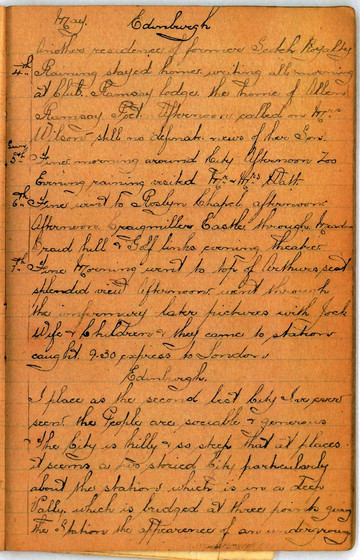 May. Edinburgh
Another residence of former Scotch Royalty
4th Raining stayed home writing all morning
at Club, Ramsay lodge the home of Allen
Ramsay Poet. Afternoon called on Mrs
Wilson still no definate news of her Son.
5th Fine morning around City Afternoon Zoo
Evening raining visited Mr & Mrs Flatt.
6th Fine went to Roslyn Chapel, afternoon
Afternoon Craigmiller Castle through
Braid hill & Golf links evening theatre
7th Fine Morning went to top of Arthurs seat
splendid view afternoon went through
the infirmary later pictures with Jock
Wife & Children & they came to station
caught 9.30 express to London
Edinburgh.
I place as the second best City I've ever
seen the People are sociable & generous
The City is hilly & so steep that at places
it seems a two storied City particularly
about the station which is in a deep
Vally which is bridged at three points giving
the Station the appearence of an undergroung